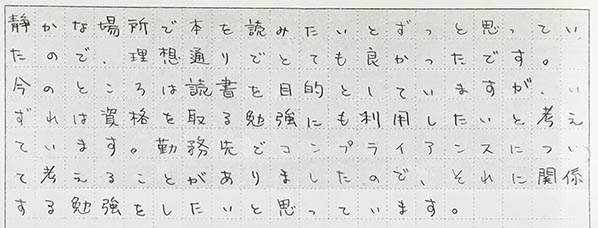 静かな場所で本を読みたいとずっと思ってい
たので、理想通りでとても良かったです。
今のところは読書を目的としていますが、い
ずれは資格を取る勉強にも利用したいと考え
ています。勤務先でコンプライアンスについ
て考えることがありましたので、それに関係
する勉強をしたいと思っています。